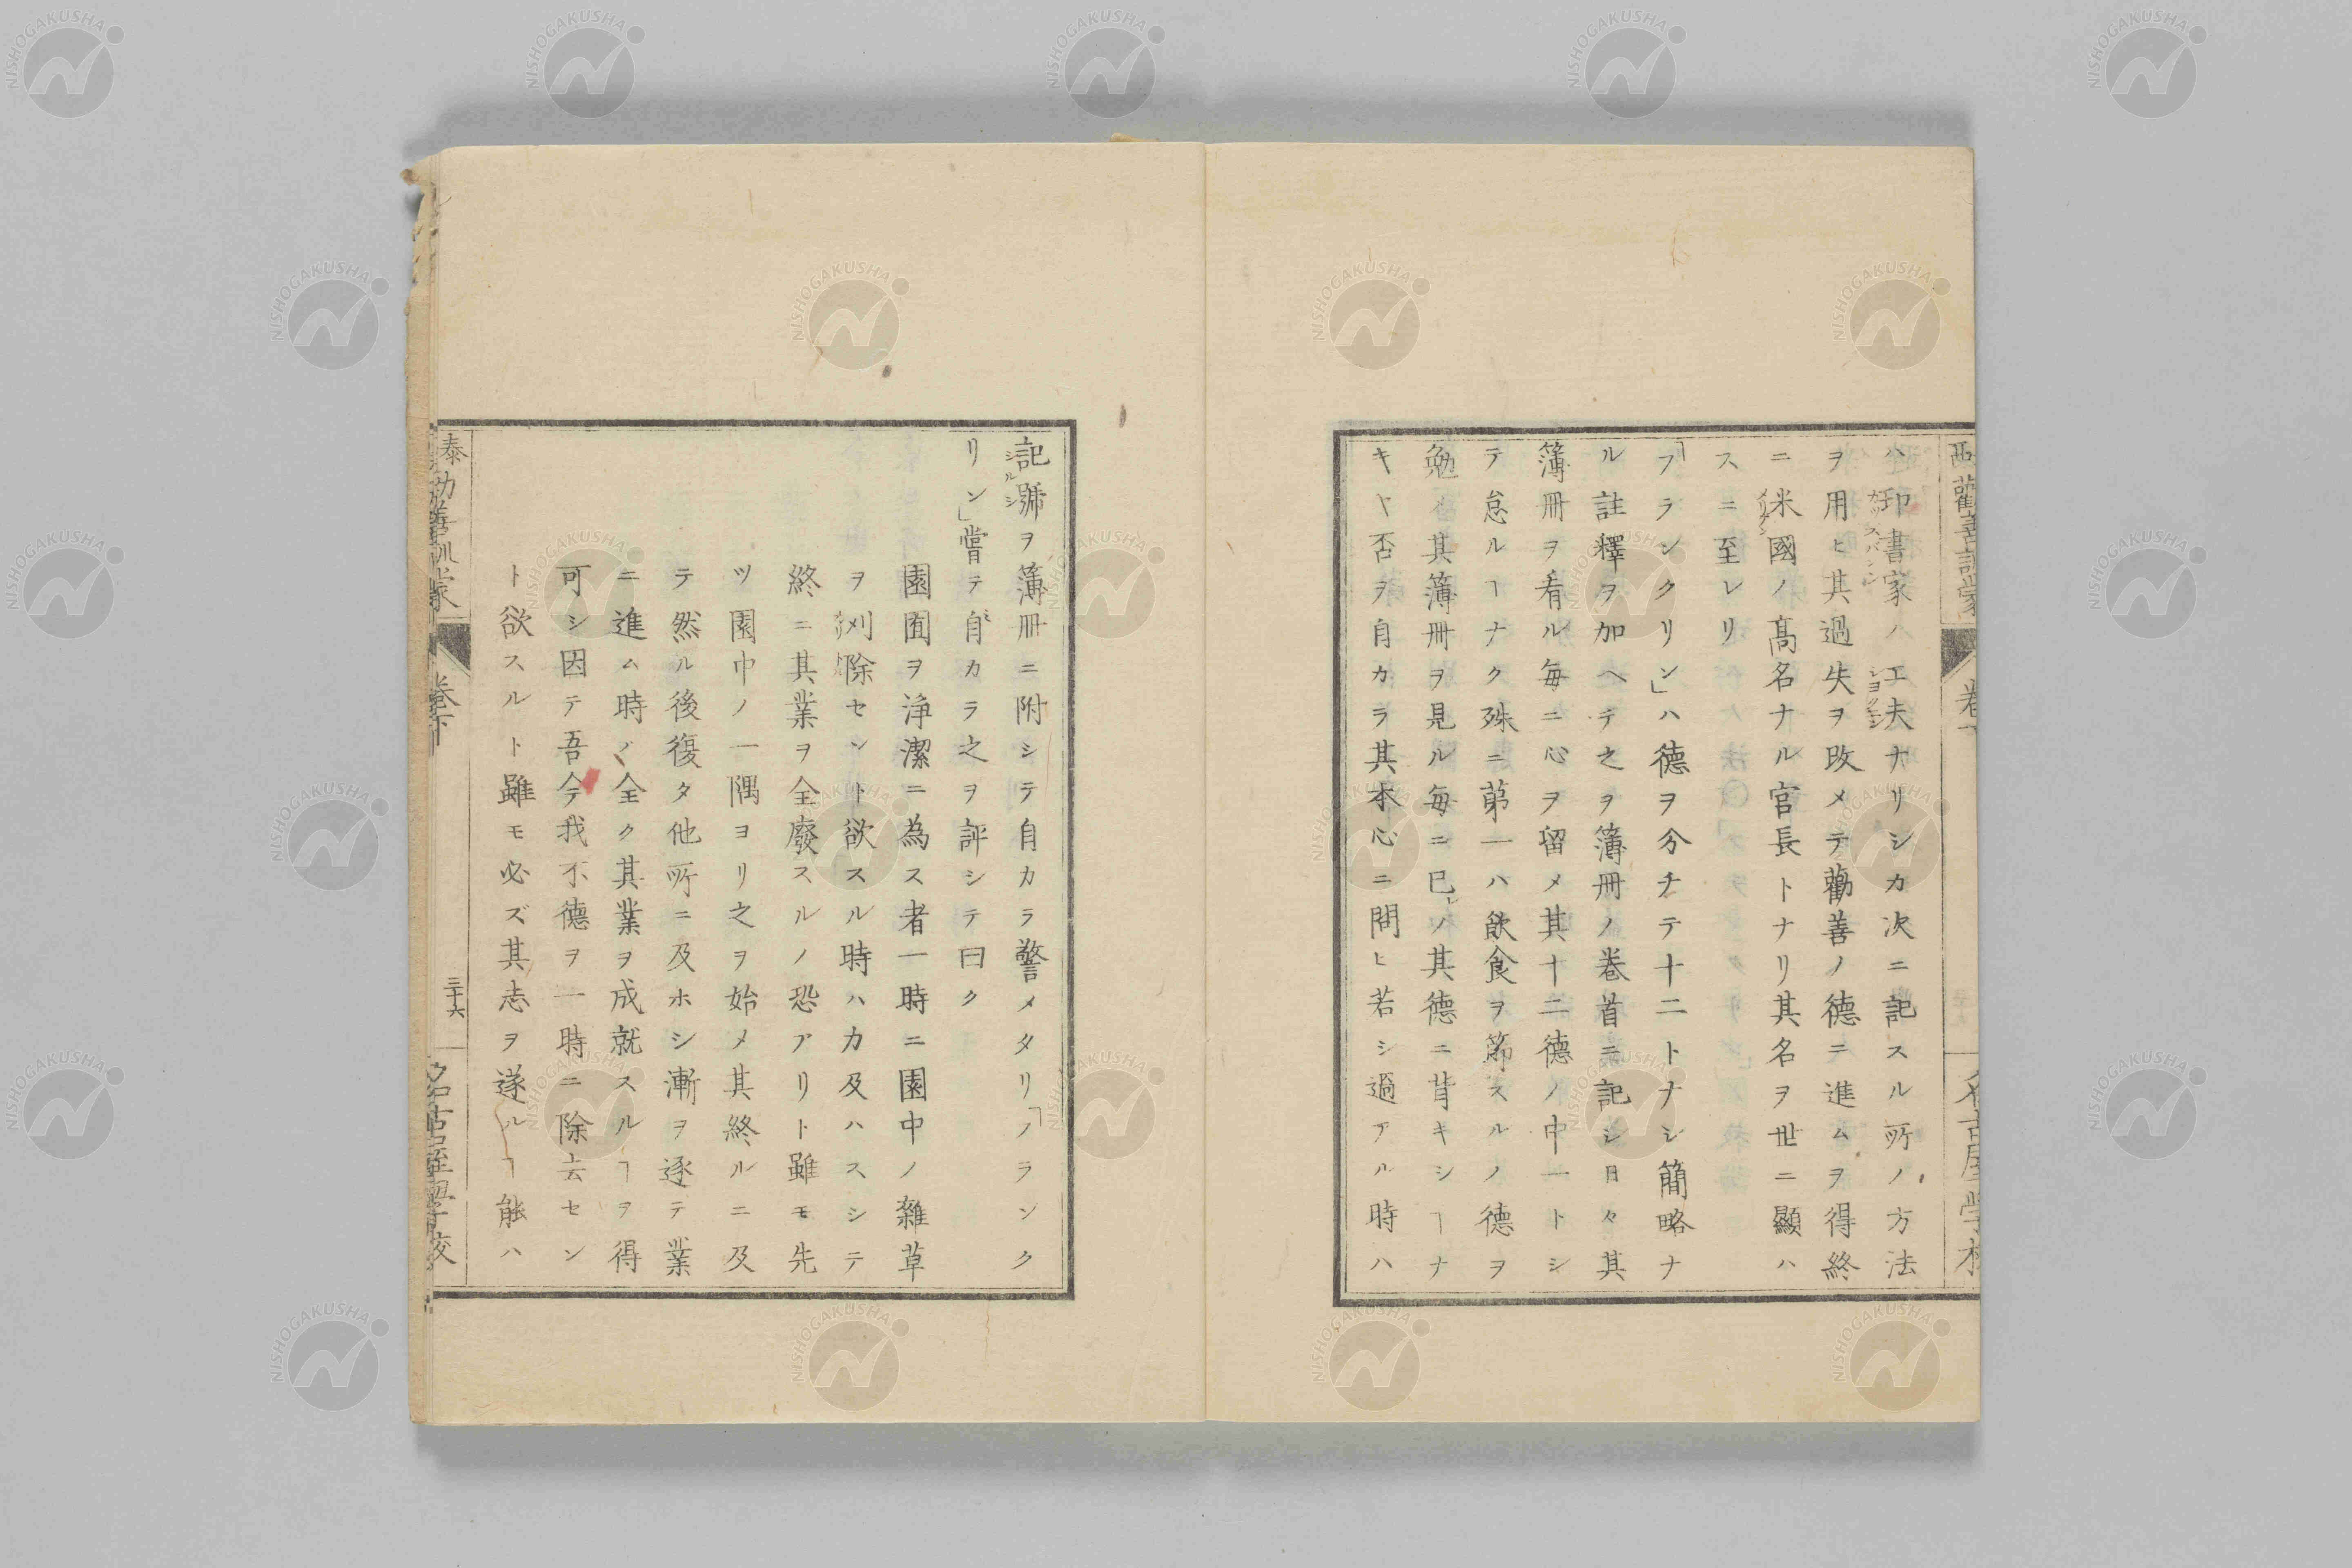 ハ印書家ノ工夫ナリシカ次ニ記スル所ノ方法
ヲ用ヒ其過失ヲ改メテ勸善ノ德ニ進ムヲ得終
ニ米國ノ髙名ナル官長トナリ其名ヲ世ニ顯ハ
スニ至レリ
「フランクリン」ハ德ヲ分チテ十二トナシ簡略ナ
ル註釋ヲ加ヘテ之ヲ簿冊ノ卷首ニ記シ日々其
簿冊ヲ看ル每ニ心ヲ留メ其十二德ノ中一トシ
テ怠ルヿナク殊ニ苐一ハ飮食ヲ節スルノ德ヲ
勉メ其簿冊ヲ見ル每ニ已レノ其德ニ背キシヿナ
キヤ否ヲ自カラ其本心ニ問ヒ若シ過アル時ハ
記號ヲ簿冊ニ附シテ自カラ警メタリ「フランク
シルシ
リン」嘗テ自カラ之ヲ評シテ曰ク
園囿ヲ淨潔ニ為ス者一時ニ園中ノ雜草
ヲ刈除セント欲スル時ハ力及ハスシテ
終ニ其業ヲ全廢スルノ恐アリト雖モ先
ツ園中ノ一隅ヨリ之ヲ始メ其終ルニ及
テ然ル後復タ他所ニ及ホシ漸ヲ逐テ業
ニ進ム時ハ全ク其業ヲ成就スルヿヲ得
可シ因テ吾今我不德ヲ一時ニ除去セン
ト欲スルト雖モ必ズ其志ヲ遂ルヿ能ハ
泰西勸善訓蒙
卷下
三十六
名古屋學校
NISHOGAKUSHA